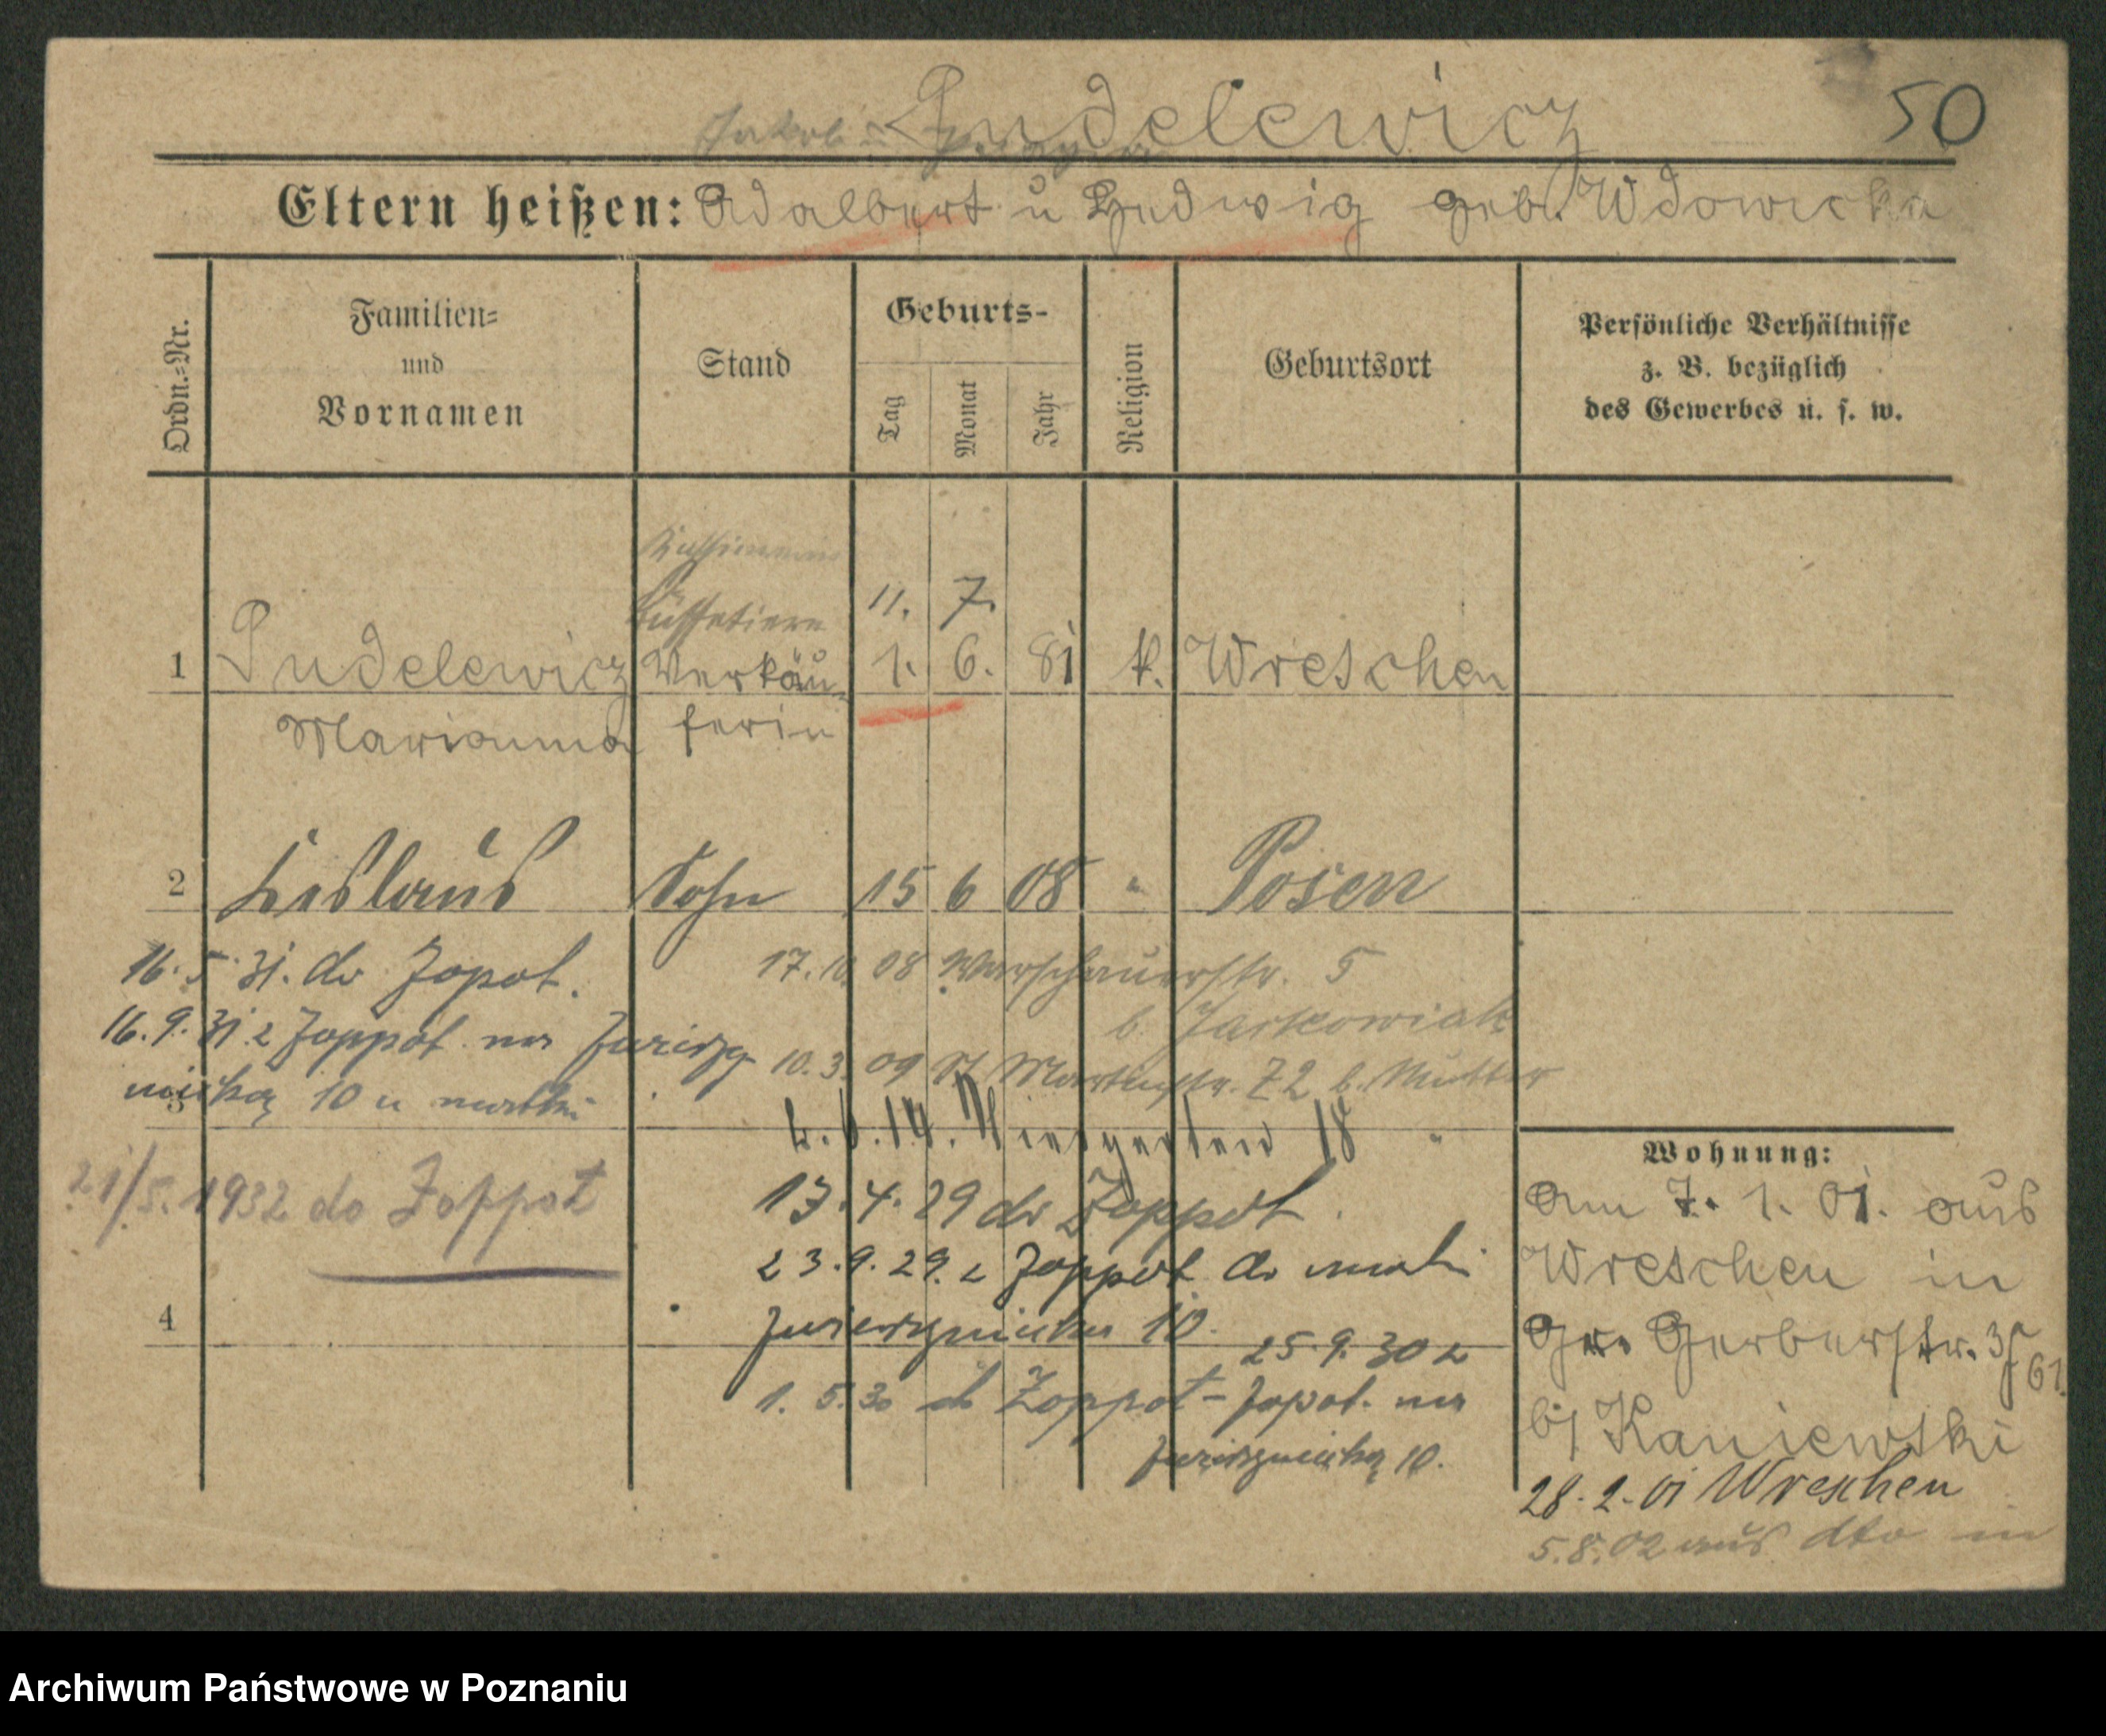 Pudelewicz
50
Jakob
Eltern heißen: Adalbert u Hedwig geb. Wdowicka
Ordn.-Nr.
Familien- und Vornamen
Stand
Geburts-
Tag
Monat
Jahr
Religion
Geburtsort
Persönliche Verhältnisse
z. B. bezüglich
des Gewerbes u. s. w.
Büffetiere
11. 7.
1 Pudelewicz Verkäu- 1. 6. 81 k. Wreschen
Marianna ferin
2 Lislaus Sohn 15 6 08 " Posen
16.5.31. do Zopot.
17.10.08 Warschauerstr. 5
b. Jaskowiak
16.9.31 z Zoppot na
10.3.09 St Martinstr. 72 b. Mutter
10 u matki
3
14. Wiesgarten 18 "
21/5. 1932 do Zoppot
13.4.29 do Zoppot.
23.9.29. z Zoppot do matki
10.
4
25.9.30 z
1.5.30 do Zoppot - Zopot. na
10.
Wohnung:
Am 7. 1. 01. aus
Wreschen in
Gr. Gerberstr.
b/ Kaniewski
28.2.01 Wreschen
5.8.02 aus dto in
Archiwum Państwowe w Poznaniu